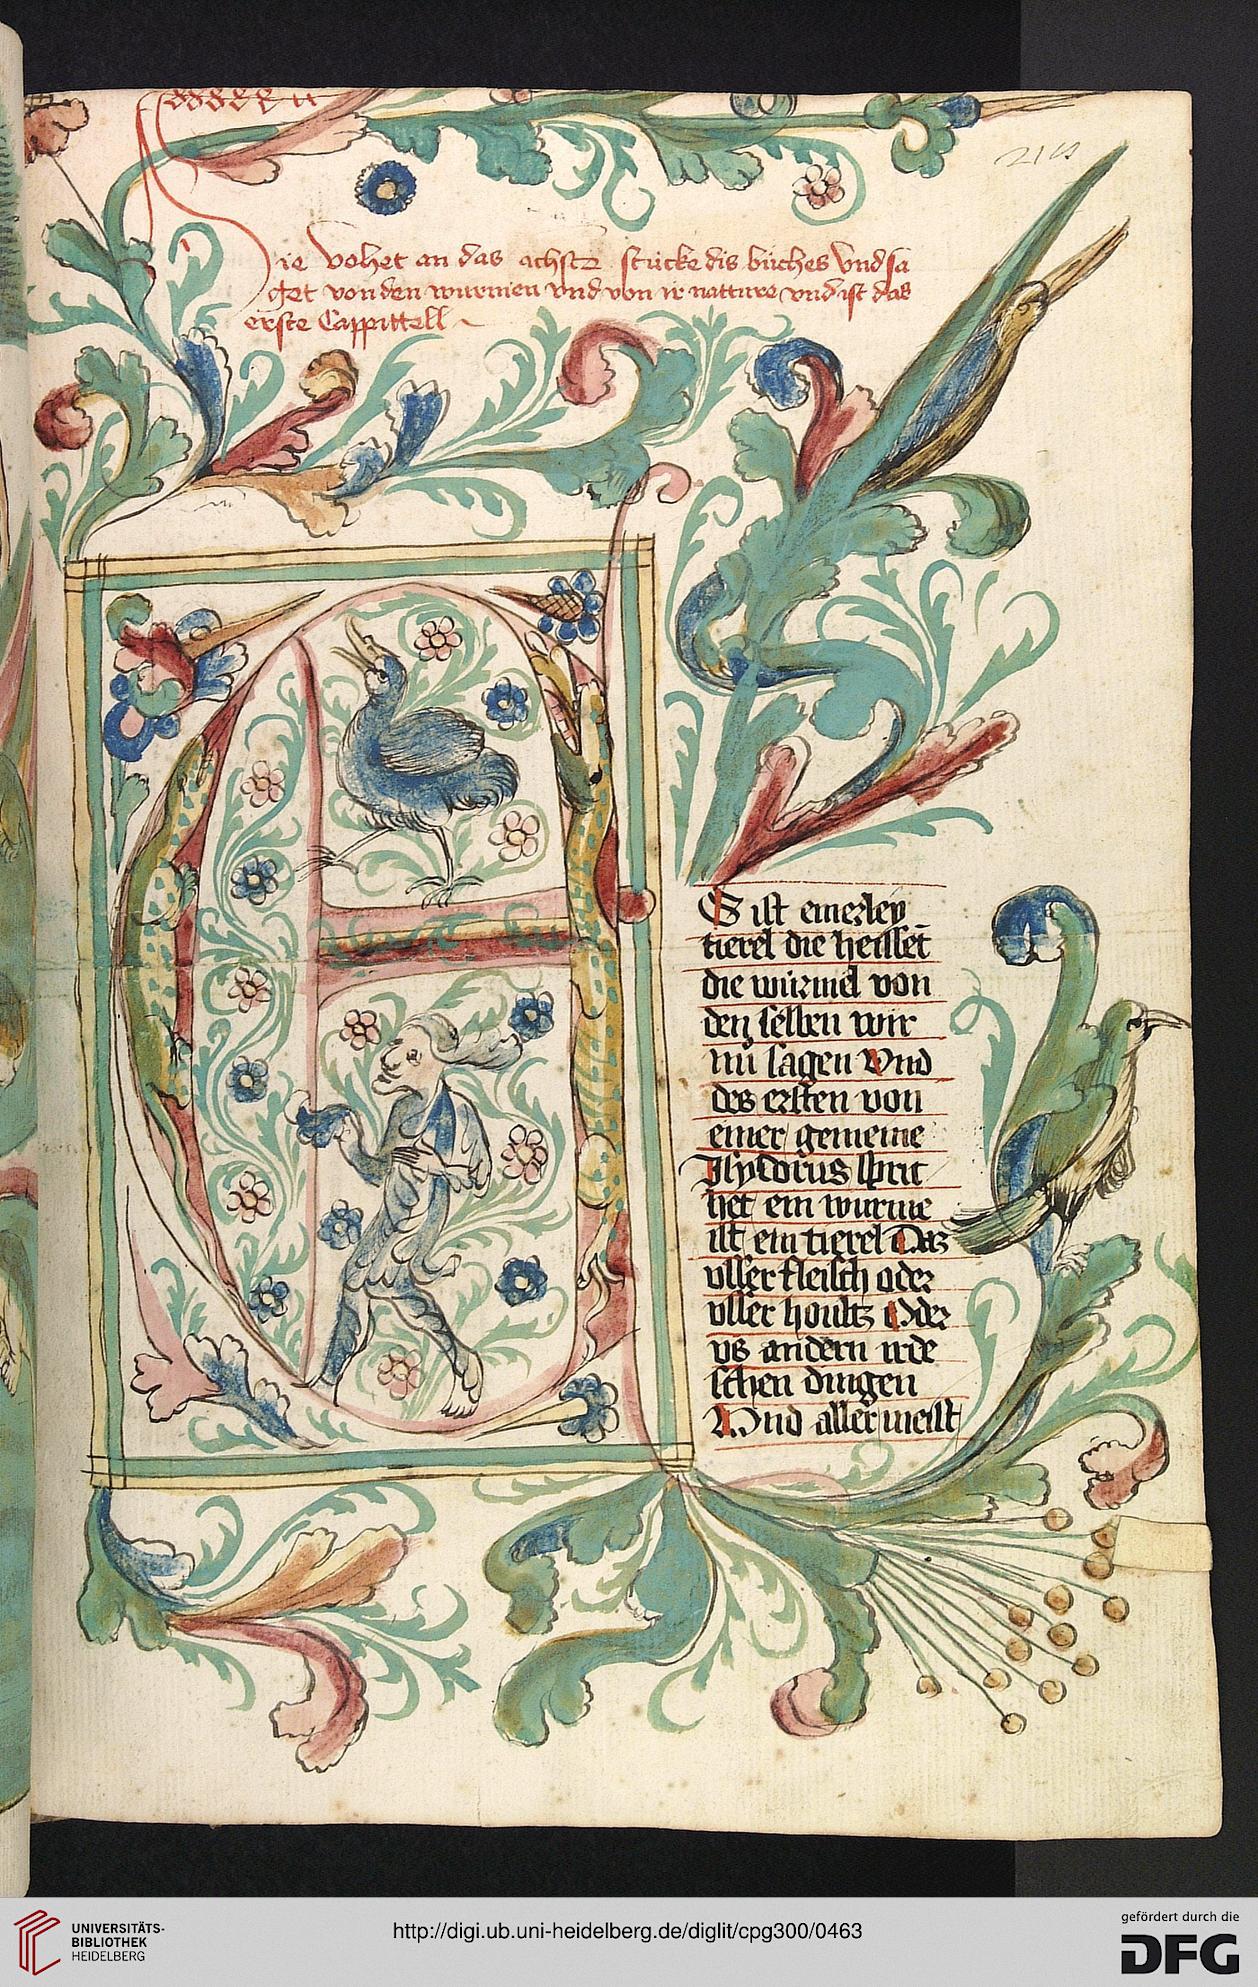 Hie vohet an das achste stücke dis buches Vnd sa
get von den wurmen vnd von ir natture vnd ist das
erste Cappittell
ES ist einerley
tierel die heisset
die würmel von
den selben wir
nü sagen Vnd
des ersten von
einer gemeine
Jsydorus spri
het ein wurme
ist ein tierel Das
vsser fleisch oder
vsser houltz Oder
vs andern irde
schen dingen
Vnd aller meist
UNIVERSITÄTS-
BIBLIOTHEK
HEIDELBERG
http://digi.ub.uni-heidelberg.de/diglit/cpg300/0463
gefördert durch die
DFG